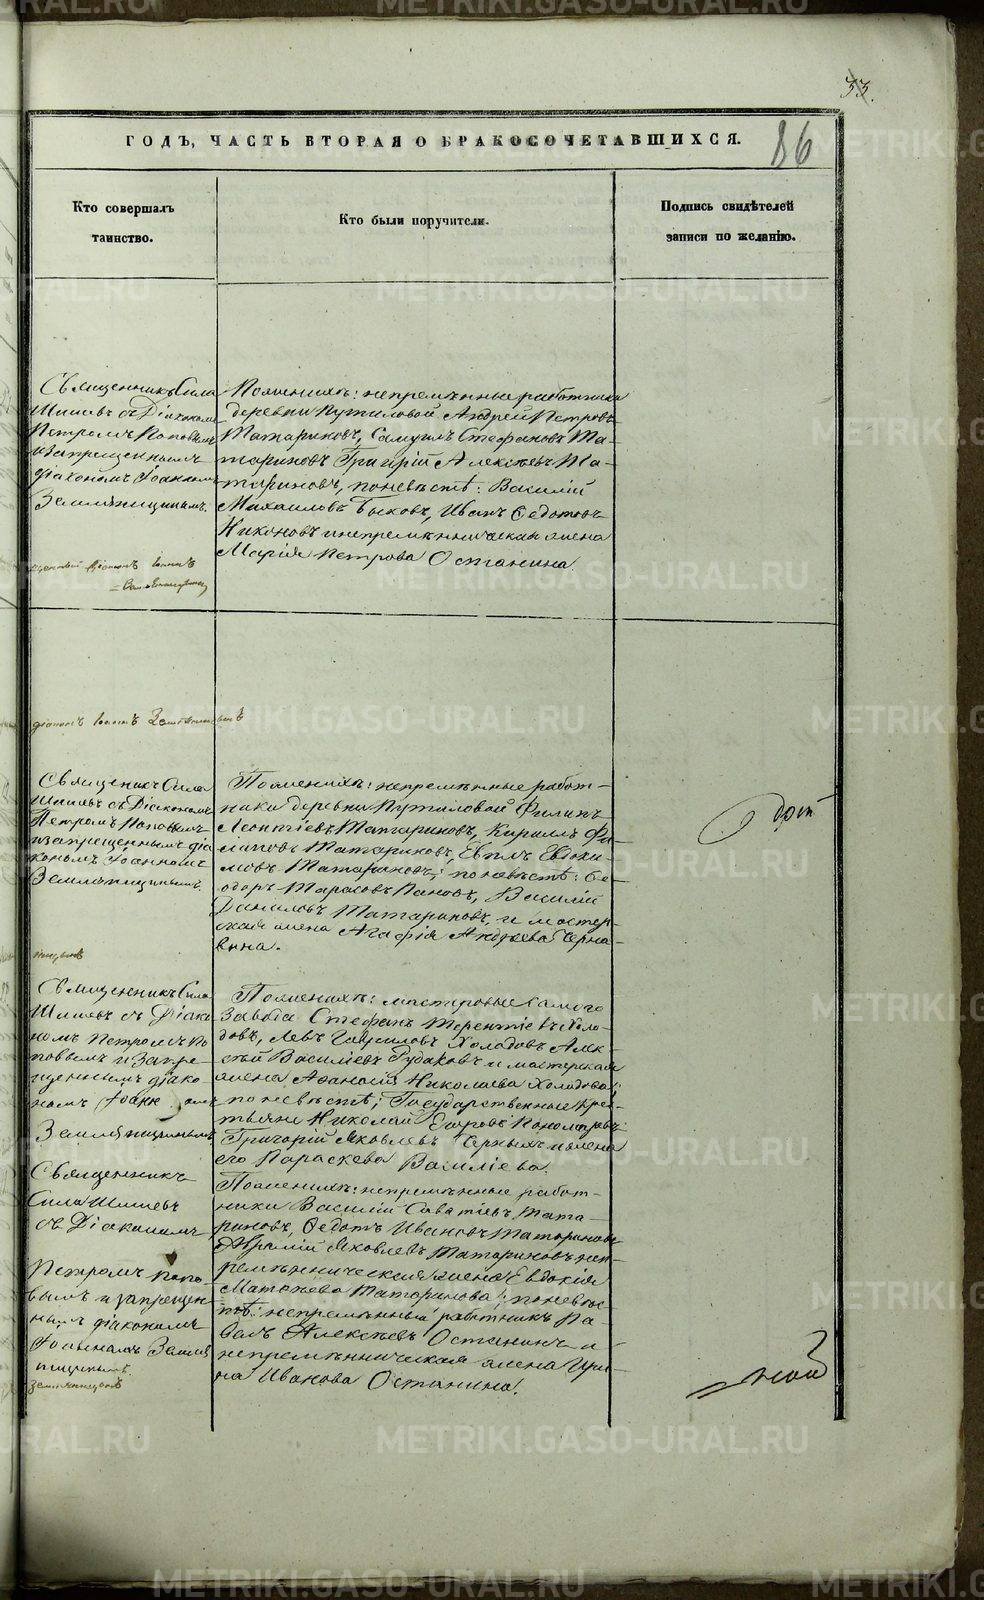 33.
86
ГОДЪ, ЧАСТЬ ВТОРАЯ О БРАКОСОЧЕТАВШИХСЯ.
Кто совершалъ
таинство.
Кто были поручители.
Подпись свидѣтелей
записи по желанію.
Священникъ Сила
Шишевъ съ Діакономъ
Петромъ Поповымъ
и запрещеннымъ
діакономъ Іоанномъ
Земляницынымъ.
По женихѣ: непремѣнные работники
деревни Путиловой Андрей Петровъ
Татариновъ, Самуилъ Стефановъ Та-
тариновъ Григорій Алексѣевъ Та-
тариновъ, по невѣстѣ: Василій
Михаиловъ Быковъ, Иванъ Ѳедотовъ
Никоновъ и непремѣнническая жена
Марія Петрова Останина
діаконъ Іоаннъ
діаконъ Іоаннъ
Священникъ Сила
Шишевъ съ Діакономъ
Петромъ Поповымъ
и запрещеннымъ діа
кономъ Іоанномъ
Земляницынымъ.
По женихѣ: непремѣнные работ-
ники деревни Путиловой Филипъ
Леонтіевъ Татариновъ, Кирилъ Фи-
липовъ Татариновъ, Евдоки-
мовъ Татариновъ; по невѣстѣ: Ѳе-
одоръ Тарасовъ Пановъ, Василій
Даниловъ Татариновъ, и мастер-
ская жена Агафія Андреева Черна-
вина.
Священникъ Сила
Шишевъ съ Діако
номъ Петромъ По
повымъ и Запре-
щеннымъ діако-
номъ
Земляницынымъ
По женихѣ: мастеровые самого
Завода Стефанъ Терентіевъ Холо-
довъ, Левъ Гавриловъ Холодовъ Алек-
сѣй Василіевъ Рудаковъ и мастерская
жена Аѳанасія Николаева Холодова;
по невѣстѣ; Государственные крес-
тьяне Николай Егоровъ Пономаревъ
Григорій Яковлевъ Черныхъ и жена
его Параскева Василіева
Священникъ
Сила Шишевъ
съ Діакономъ
Петромъ Попо-
вымъ и запрещен-
нымъ діакономъ
Іоанномъ Земля
ницынымъ.
По женихѣ: непремѣнные работ-
ники Василій Саватіевъ Тата-
риновъ, Ѳедотъ Ивановъ Татариновъ
Яковлевъ Татариновъ неп-
ремѣнническая жена Евдокія
Матѳеева Татаринова; по невѣс-
тѣ: непремѣнный работникъ Па-
велъ Алексѣевъ Останинъ и
непремѣнническая жена Ири-
на Иванова Останина.